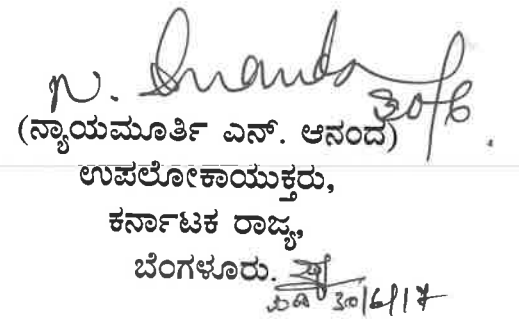 N. Ananda
30/6
(ನ್ಯಾಯಮೂರ್ತಿ ಎನ್. ಆನಂದ)
ಉಪಲೋಕಾಯುಕ್ತರು,
ಕರ್ನಾಟಕ ರಾಜ್ಯ,
ಬೆಂಗಳೂರು.
30/6/17